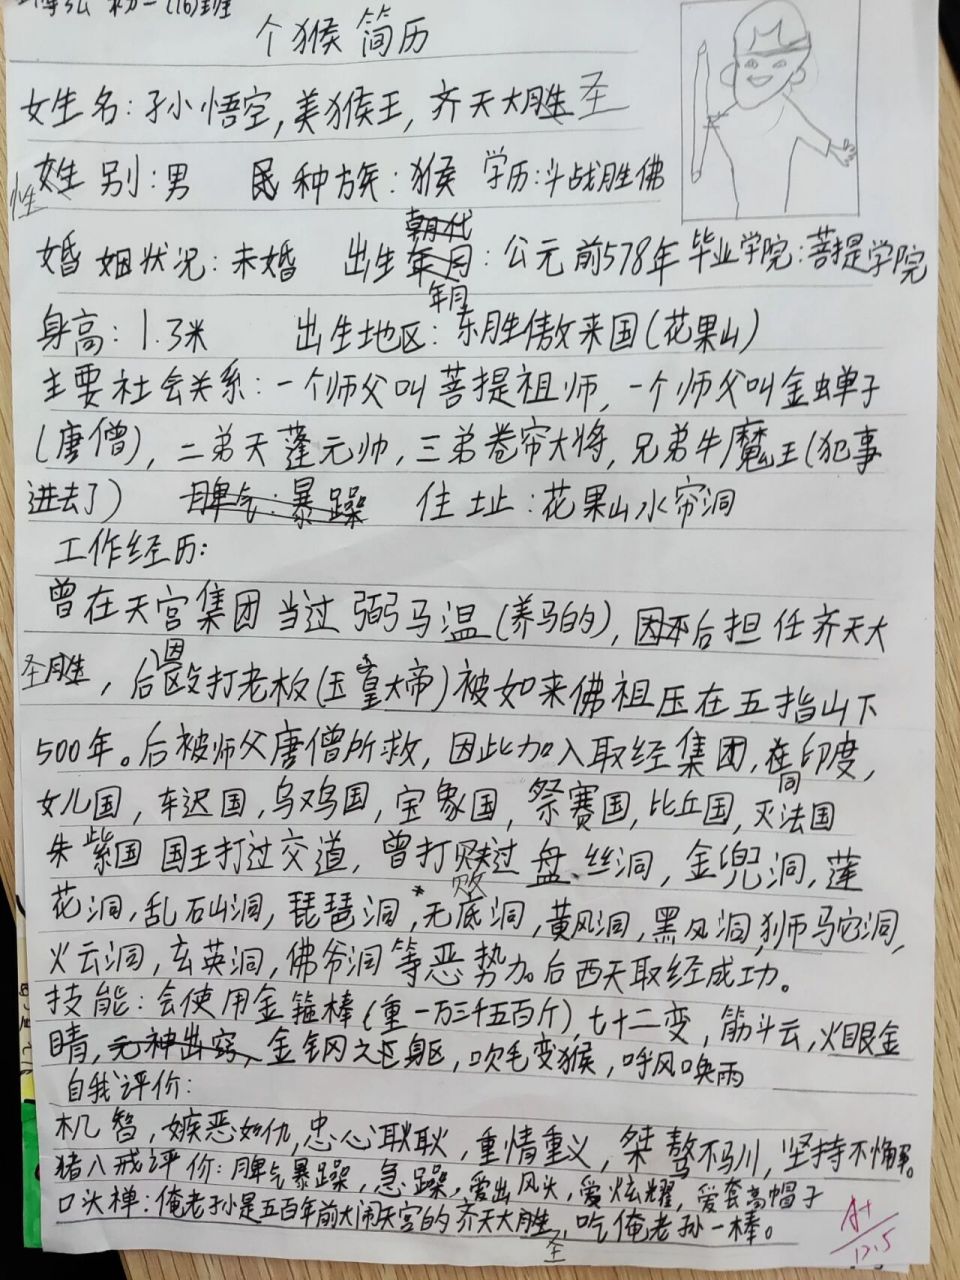 初一(16)班
个猴简历
女生名:孙小悟空,美猴王,齐天大胜圣
性
姓别:男 民种族:猴 学历:斗战胜佛
朝代
婚姻状况:未婚 出生年月:公元前578年 毕业学院:菩提学院
年月
身高:1.3米 出生地区:东胜傲来国(花果山)
主要社会关系:一个师父叫菩提祖师,一个师父叫金蝉子
(唐僧),二弟天蓬元帅,三弟卷帘大将,兄弟牛魔王(犯事
进去了) 脾气:暴躁 住址:花果山水帘洞
工作经历:
曾在天宫集团当过弼马温(养马的),因本后担任齐天大
圣胜,后因殴打老板(玉皇大帝)被如来佛祖压在五指山下
500年。后被师父唐僧所救,因此加入取经集团,在印度,
同
女儿国,车迟国,乌鸡国,宝象国,祭赛国,比丘国,灭法国
朱紫国国王打过交道,曾打败过盘丝洞,金兜洞,莲
败
花洞,乱石山洞,琵琶洞,无底洞,黄风洞,黑风洞,狮驼洞,
火云洞,玄英洞,佛爷洞等恶势力。后西天取经成功。
技能:会使用金箍棒(重一万三千五百斤),七十二变,筋斗云,火眼金
睛,元神出窍,金钢之区躯,吹毛变猴,呼风唤雨
自我评价:
机智,嫉恶如仇,忠心耿耿,重情重义,桀骜不马川,坚持不懈。
猪八戒评价:脾气暴躁,急躁,爱出风头,爱炫耀,爱套高帽子
口头禅:俺老孙是五百年前大闹天宫的齐天大胜,吃俺老孙一棒。
圣
A+
12.5